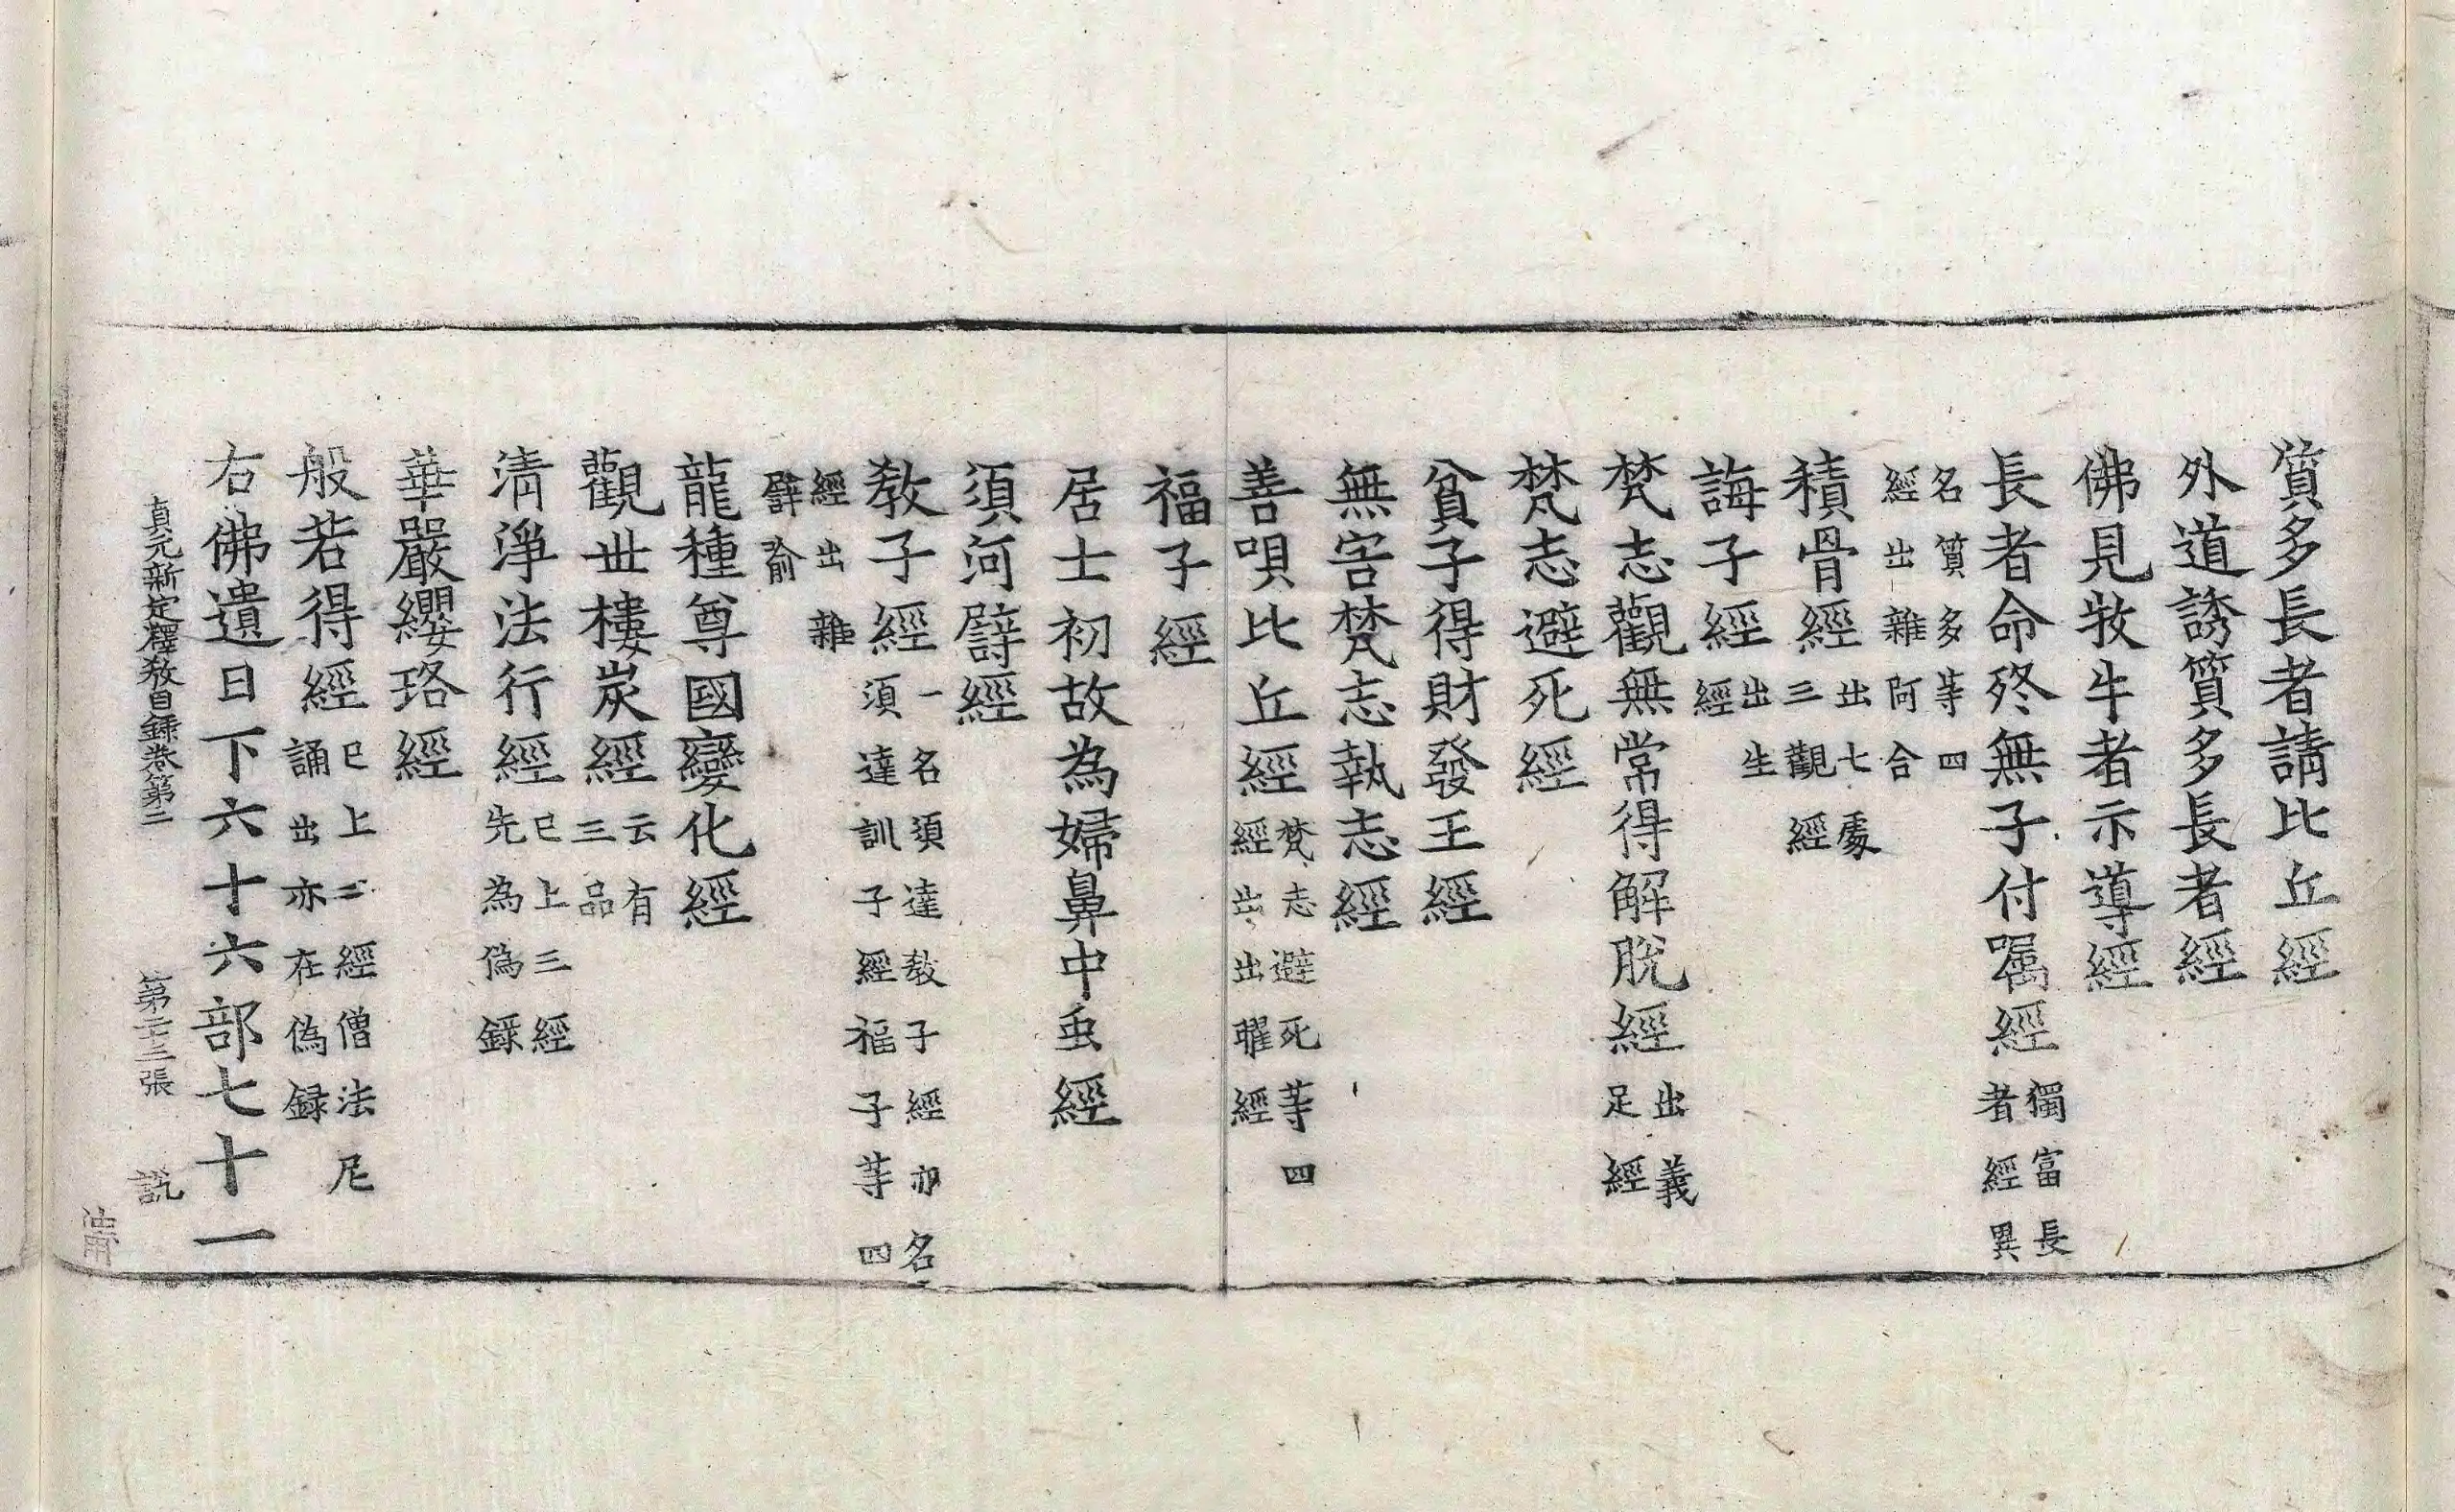 質多長者請比丘經
外道誘質多長者經
佛見牧牛者示導經
長者命終無子付囑經獨富長者經異
名質多等四經出雜阿含
積骨經出七處三觀經
誨子經出生經
梵志觀無常得解脫經出義足經
梵志避死經
貧子得財發王經
無害梵志執志經
善唄比丘經梵志避死等四經出出曜經
福子經
居士初故為婦鼻中虫經
須河譬經
教子經一名須達教子經亦名須達訓子經福子等四
經出雜譬喻
龍種尊國變化經
觀世樓炭經云有三品
清淨法行經已上三經先為偽錄
華嚴纓珞經
般若得經已上二經僧法尼誦出亦在偽録
右佛遺日下六十六部七十一
貞元新定釋教目録卷第二 第二十三張 說